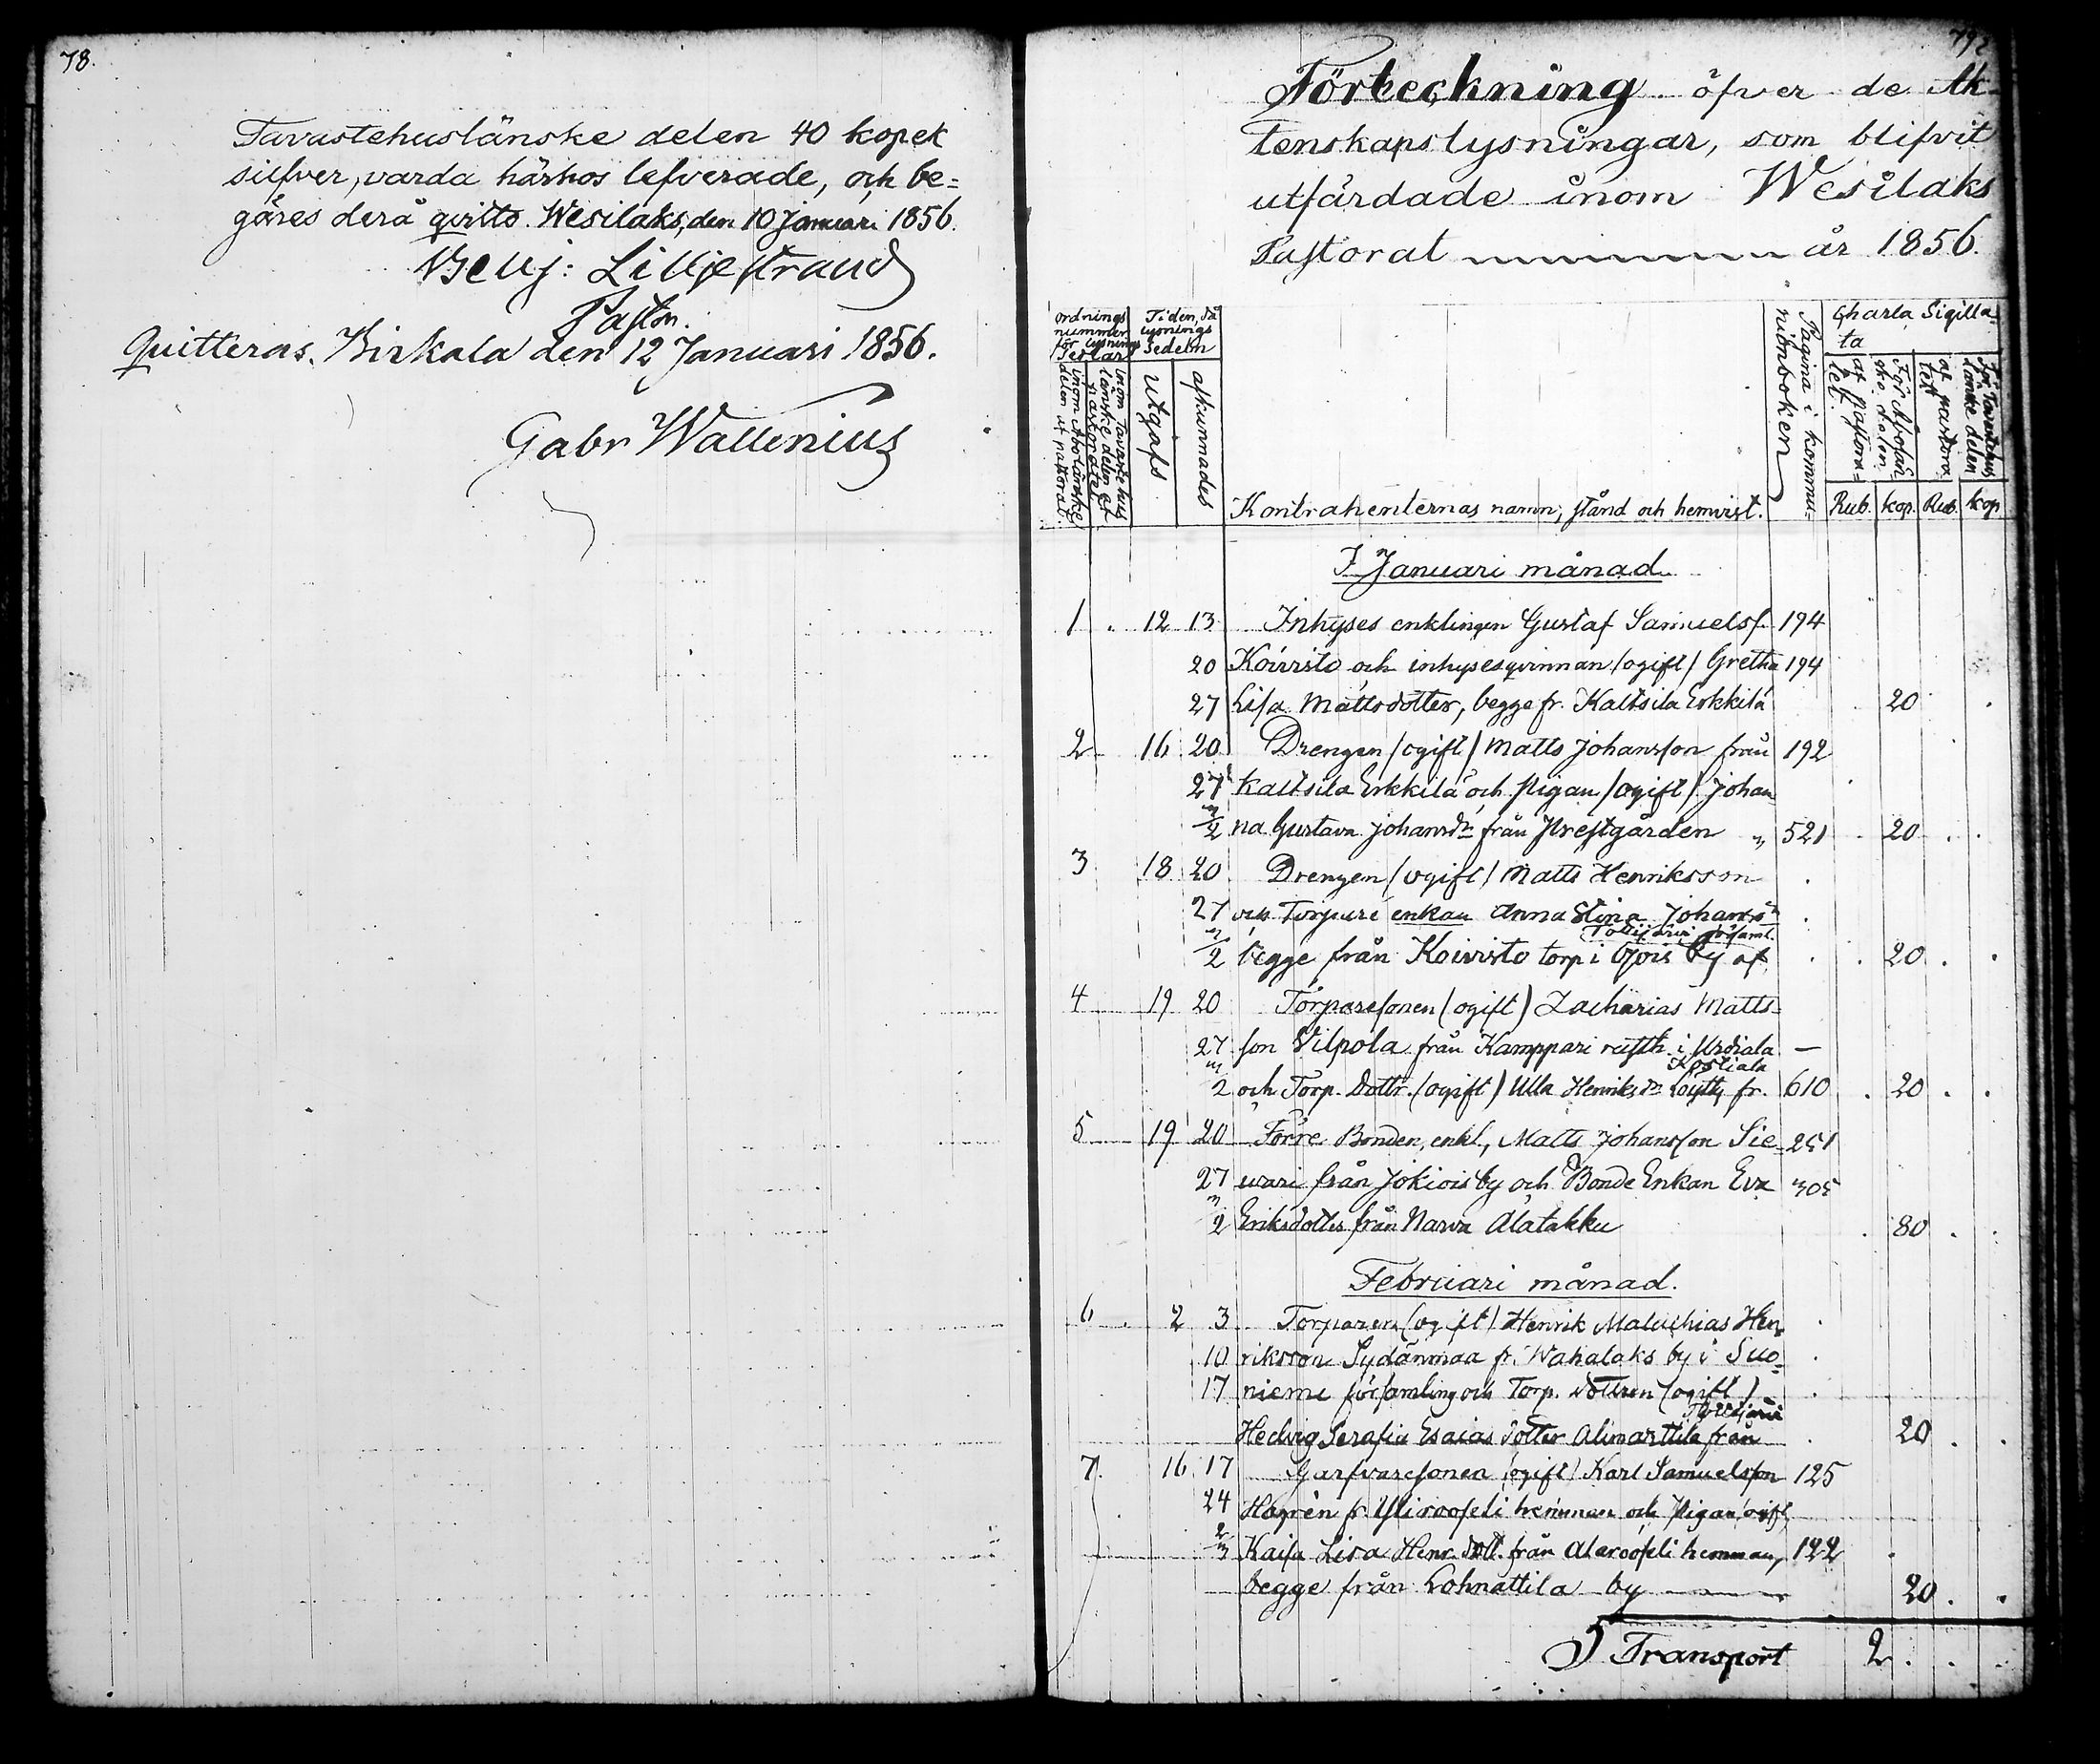 78.
Tavastehuslänske delen 40 kopek
silfver, varda härhos lefverade, och be=
gäres derå qvitto. Wesilaks, den 10 Januari 1856.
Benj: Lilljestrand
Pastor.
Quitteras. Birkala den 12 Januari 1856.
Gabr Wallenius
79
Förteckning öfver de Äk=
tenskapslysningar, som blifvit
utfärdade inom Wesilaks
Pastorat år 1856.
Ordnings nummer för lysnings Sedlar
Tiden, då lysnings Sedeln
inom Åbolänske delen af pastoratet
inom Tavastehus länske delen af pastoratet
utgafs
afkunnades
Kontrahenternas namn, stånd och hemvist.
Pagina i kommunionboken
Charta Sigillata
För Åbolänske delen af Pastoratet.
För Tavastehuslänske delen af pastoratet
Rub. kop. Rub. kop
I Januari månad
1 12 13 Inhyses enklingen Gustaf Samuelss. 194
20 Koivisto och inhysesqvinnan (ogift) Gretha 194
27 Lisa Mattsdotter, begge fr. Kaltsila Erkkilä 20
2 16 20 Drengen (ogift) Matts Johansson från 192
27 Kaltsila Erkkilä och Pigan (ogift) Johan
3/2 na Gustava Johansdr från Prestgården 521 20
3 18 20 Drengen (ogift) Matts Henriksson
27 och Torpare enkan Anna Stina Johansdr
Tottijärvi församl.
3/2 begge från Koivisto torp i by af 20
4 19 20 Torparesonen (ogift) Zacharias Matts=
27 son Vilpola från Kamppari rusth. i Urdiala —
Kostiala
3/2 och Torp. Dottr. (ogift) Ulla Henriksdr Löytty fr. 610 20
5 19 20 Förre Bonden, enkl, Matts Johansson Sie= 251
27 wari från Jokiois by och Bonde Enkan Eva 305
3/2 Eriksdotter från Narva Alatakku 80
Februari månad.
6 2 3 Torparen (ogift) Henrik Malachias Hen
10 riksson Sydänmaa fr. Wahalaks by i Suo=
17 niemi församling och Torp. dottren (ogift)
Tottijärvi
Hedvig Serafia Esaias dotter Alimarttila från 20
7. 16 17 Garfvaresonen (ogift) Karl Samuelsson 125
24 Hagrén fr. Yliroopeli hemman och Pigan (ogift)
2/3 Kaisa Lisa Henr. dott. från Alaroopeli hemman, 122
begge från Lohnattila by 20
Transport 2